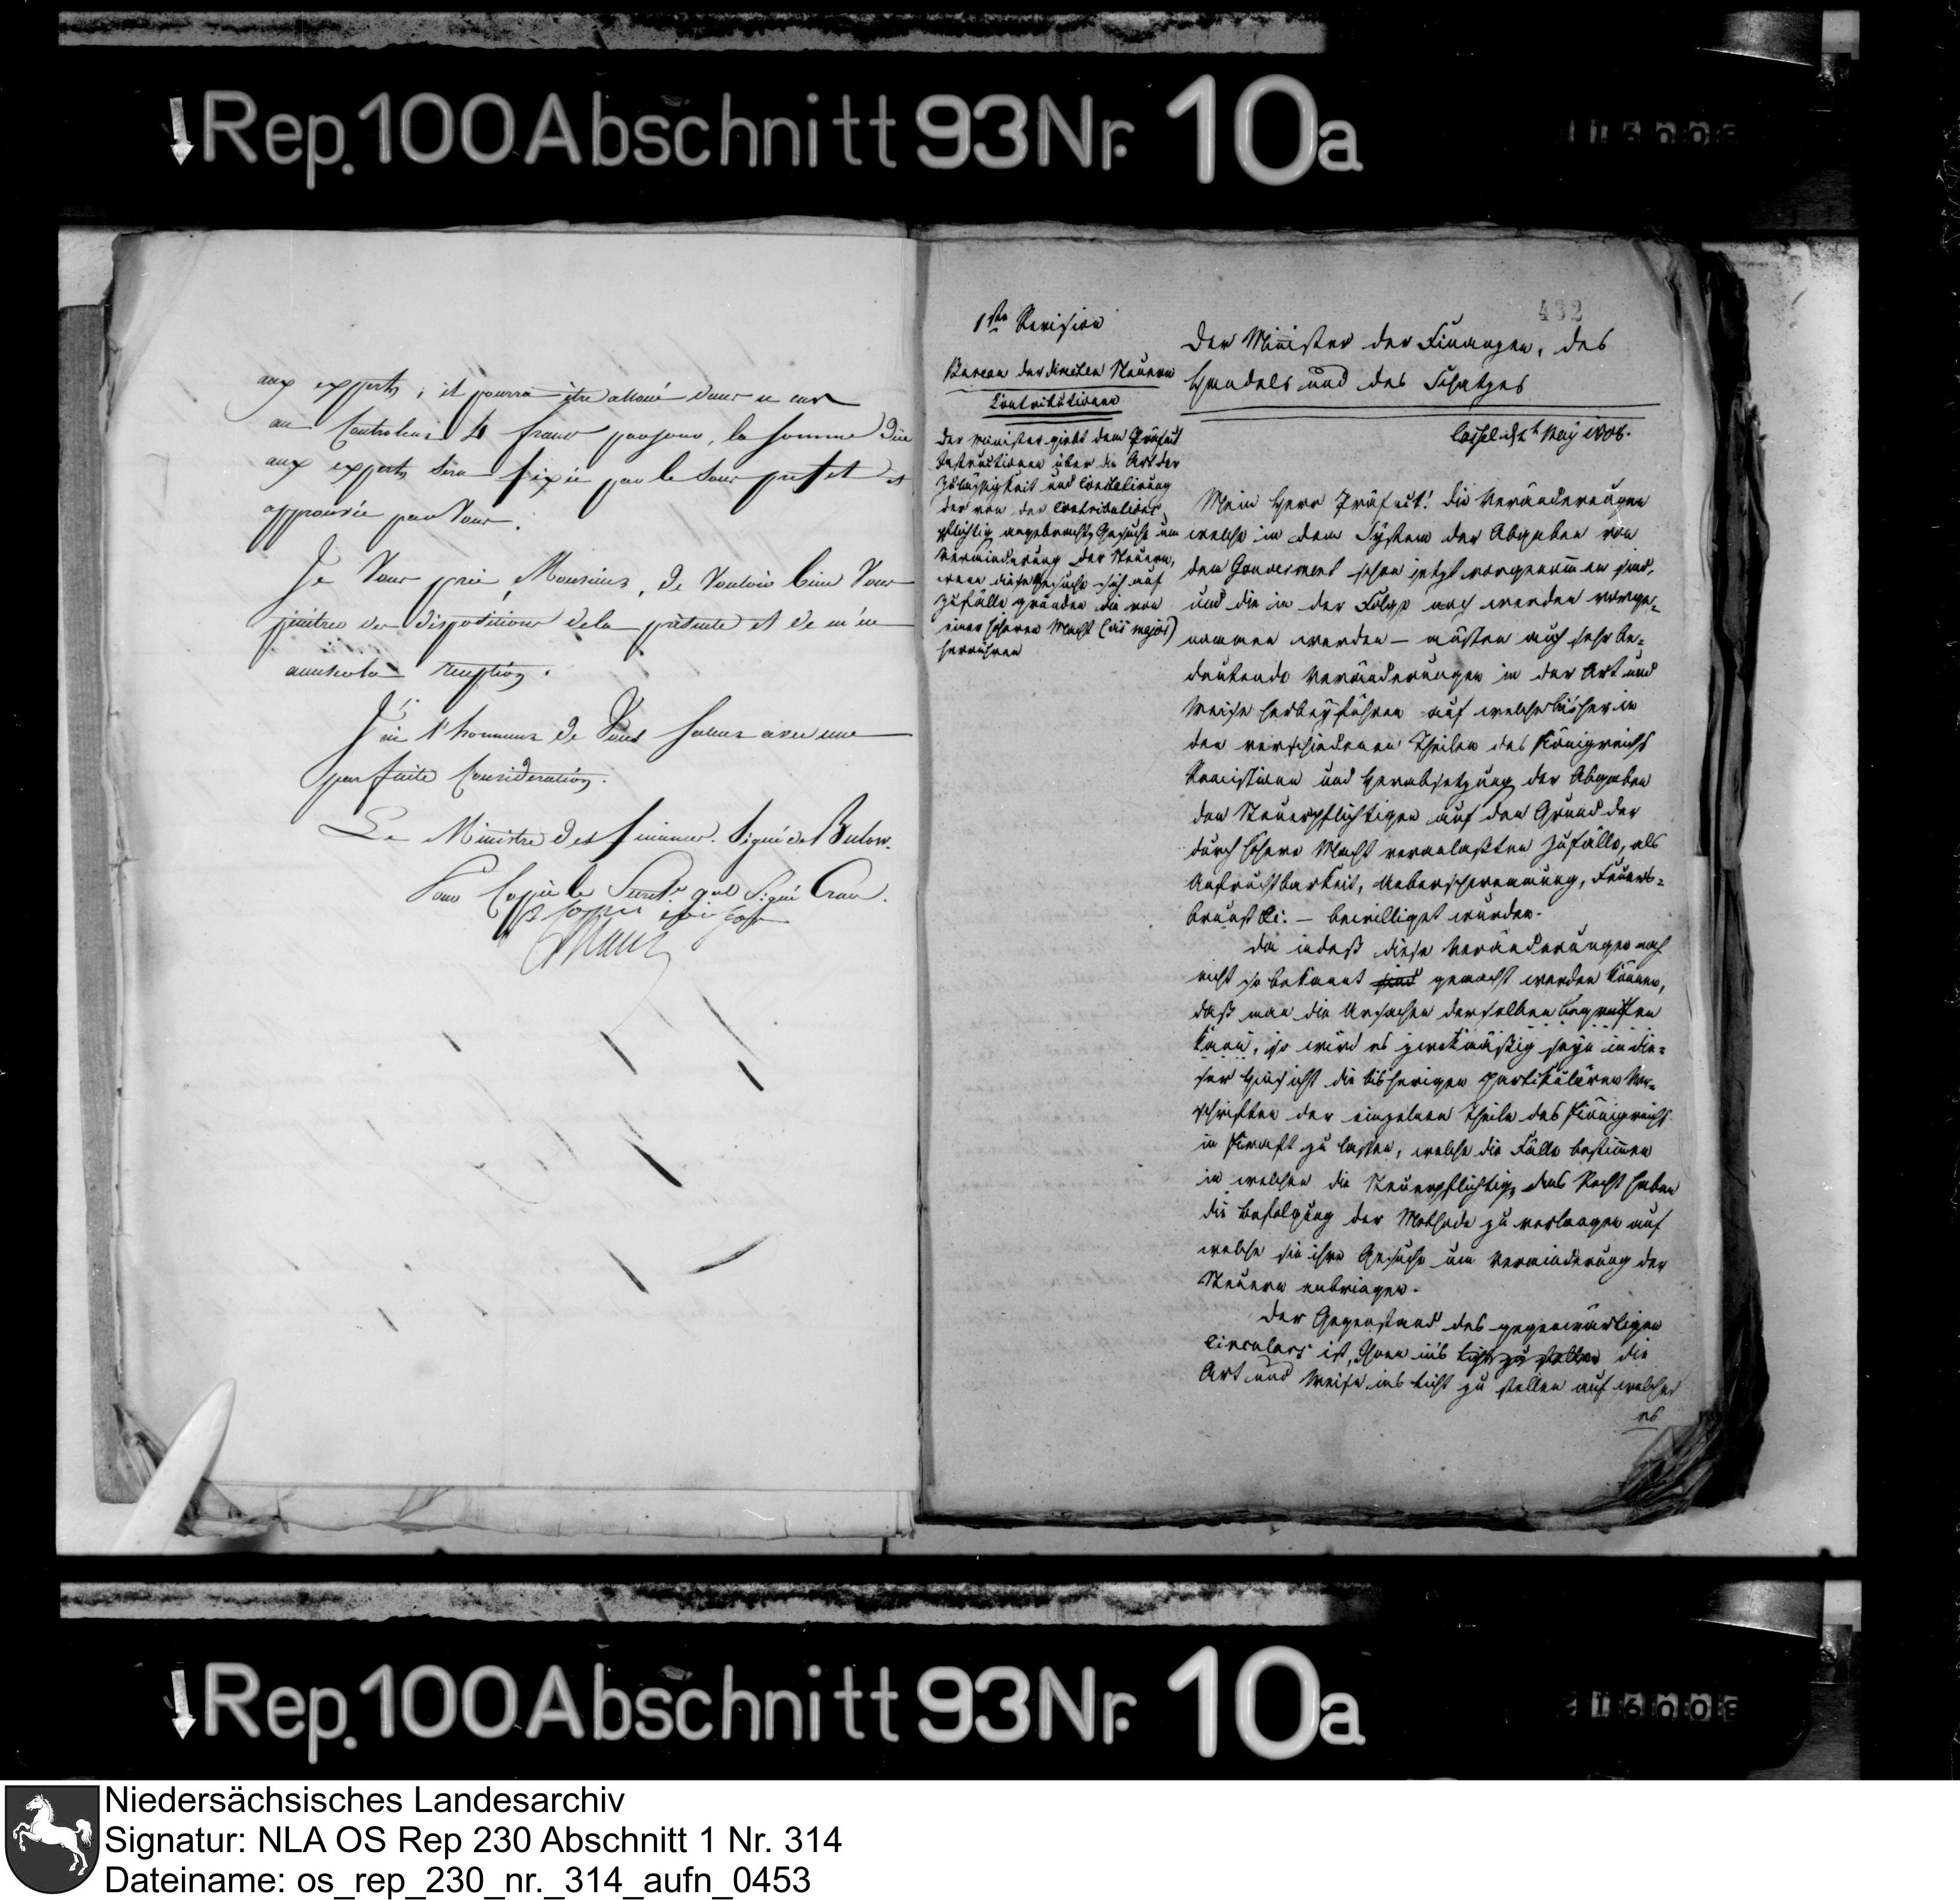 Rep. 100 Abschnitt 93 Nr. 10a
aux experts; il pourra être alloué dans ce cas
au Controleur 4 francs par jour, la somme düe
aux experts sera fixée par le Sous prefet et
approuvée par Vous.
Je Vous prie, Monsieur, de Vouloir bien Vous
pénétrer des dispositions de la présente et de m'en
annoncer la reception.
J'ai l'honneur de Vous saluer avec une
parfaite Considération.
Le Ministre des finances. Signé de Bulow.
Pour Copie le Secret. gal Signé
432
1ste Revision
Bureau der directen Steuern
Contributionen
Der Minister giebt dem Präfect
Instructionen über die Art der
Zuläßigkeit und Constatirung
der von den Contributions
pflichtig angebrachten Gesuche um
Verminderung der Steuern,
wenn diese Gesuche sich auf
Zufälle gründen die von
einer höheren Macht (vis major)
herrühren
Der Minister der Finanzen, des
Handels und des Schatzes
Cassel d May 1808.
Mein Herr Präfect! Die Veränderungen
welche in dem System der Abgaben von
dem Gouverment schon jetzt vorgenommen sind,
und die in der Folge noch werden vorge-
nommen werden — müßen auch sehr be-
deutende Veränderungen in der Art und
Weise herbeyführen auf welche bisher in
den verschiedenen Theilen des Königreichs
Remissionen und Herabsetzung der Abgaben
den Steuerpflichtigen auf den Grund der
durch höhere Macht veranlaßten Zufälle, als
Unfruchtbarkeit, Ueberschwemmung, Feuers-
brunst &c. — bewilliget wurden.
Da indeß diese Veränderungen noch
nicht so bekannt sind gemacht werden können,
daß man die Ursachen derselben begreiffen
kann, so wird es zweckmäßig seyn in die-
ser Hinsicht die bisherigen partikulären Vor-
schriften der einzelnen Theile des Königreichs
in Kraft zu lassen, welche die Fälle bestimmen
in welchen die Steuerpflichtigen das Recht haben
die Befolgung der Methode zu verlangen auf
welche sie ihre Gesuche um Verminderung der
Steuern anbringen.
Der Gegenstand des gegenwärtigen
Circulars ist, Ihnen ins Licht zu stellen die
Art und Weise ins Licht zu stellen auf welcher
es
Rep. 100 Abschnitt 93 Nr. 10a
Niedersächsisches Landesarchiv
Signatur: NLA OS Rep 230 Abschnitt 1 Nr. 314
Dateiname: os_rep_230_nr._314_aufn_0453